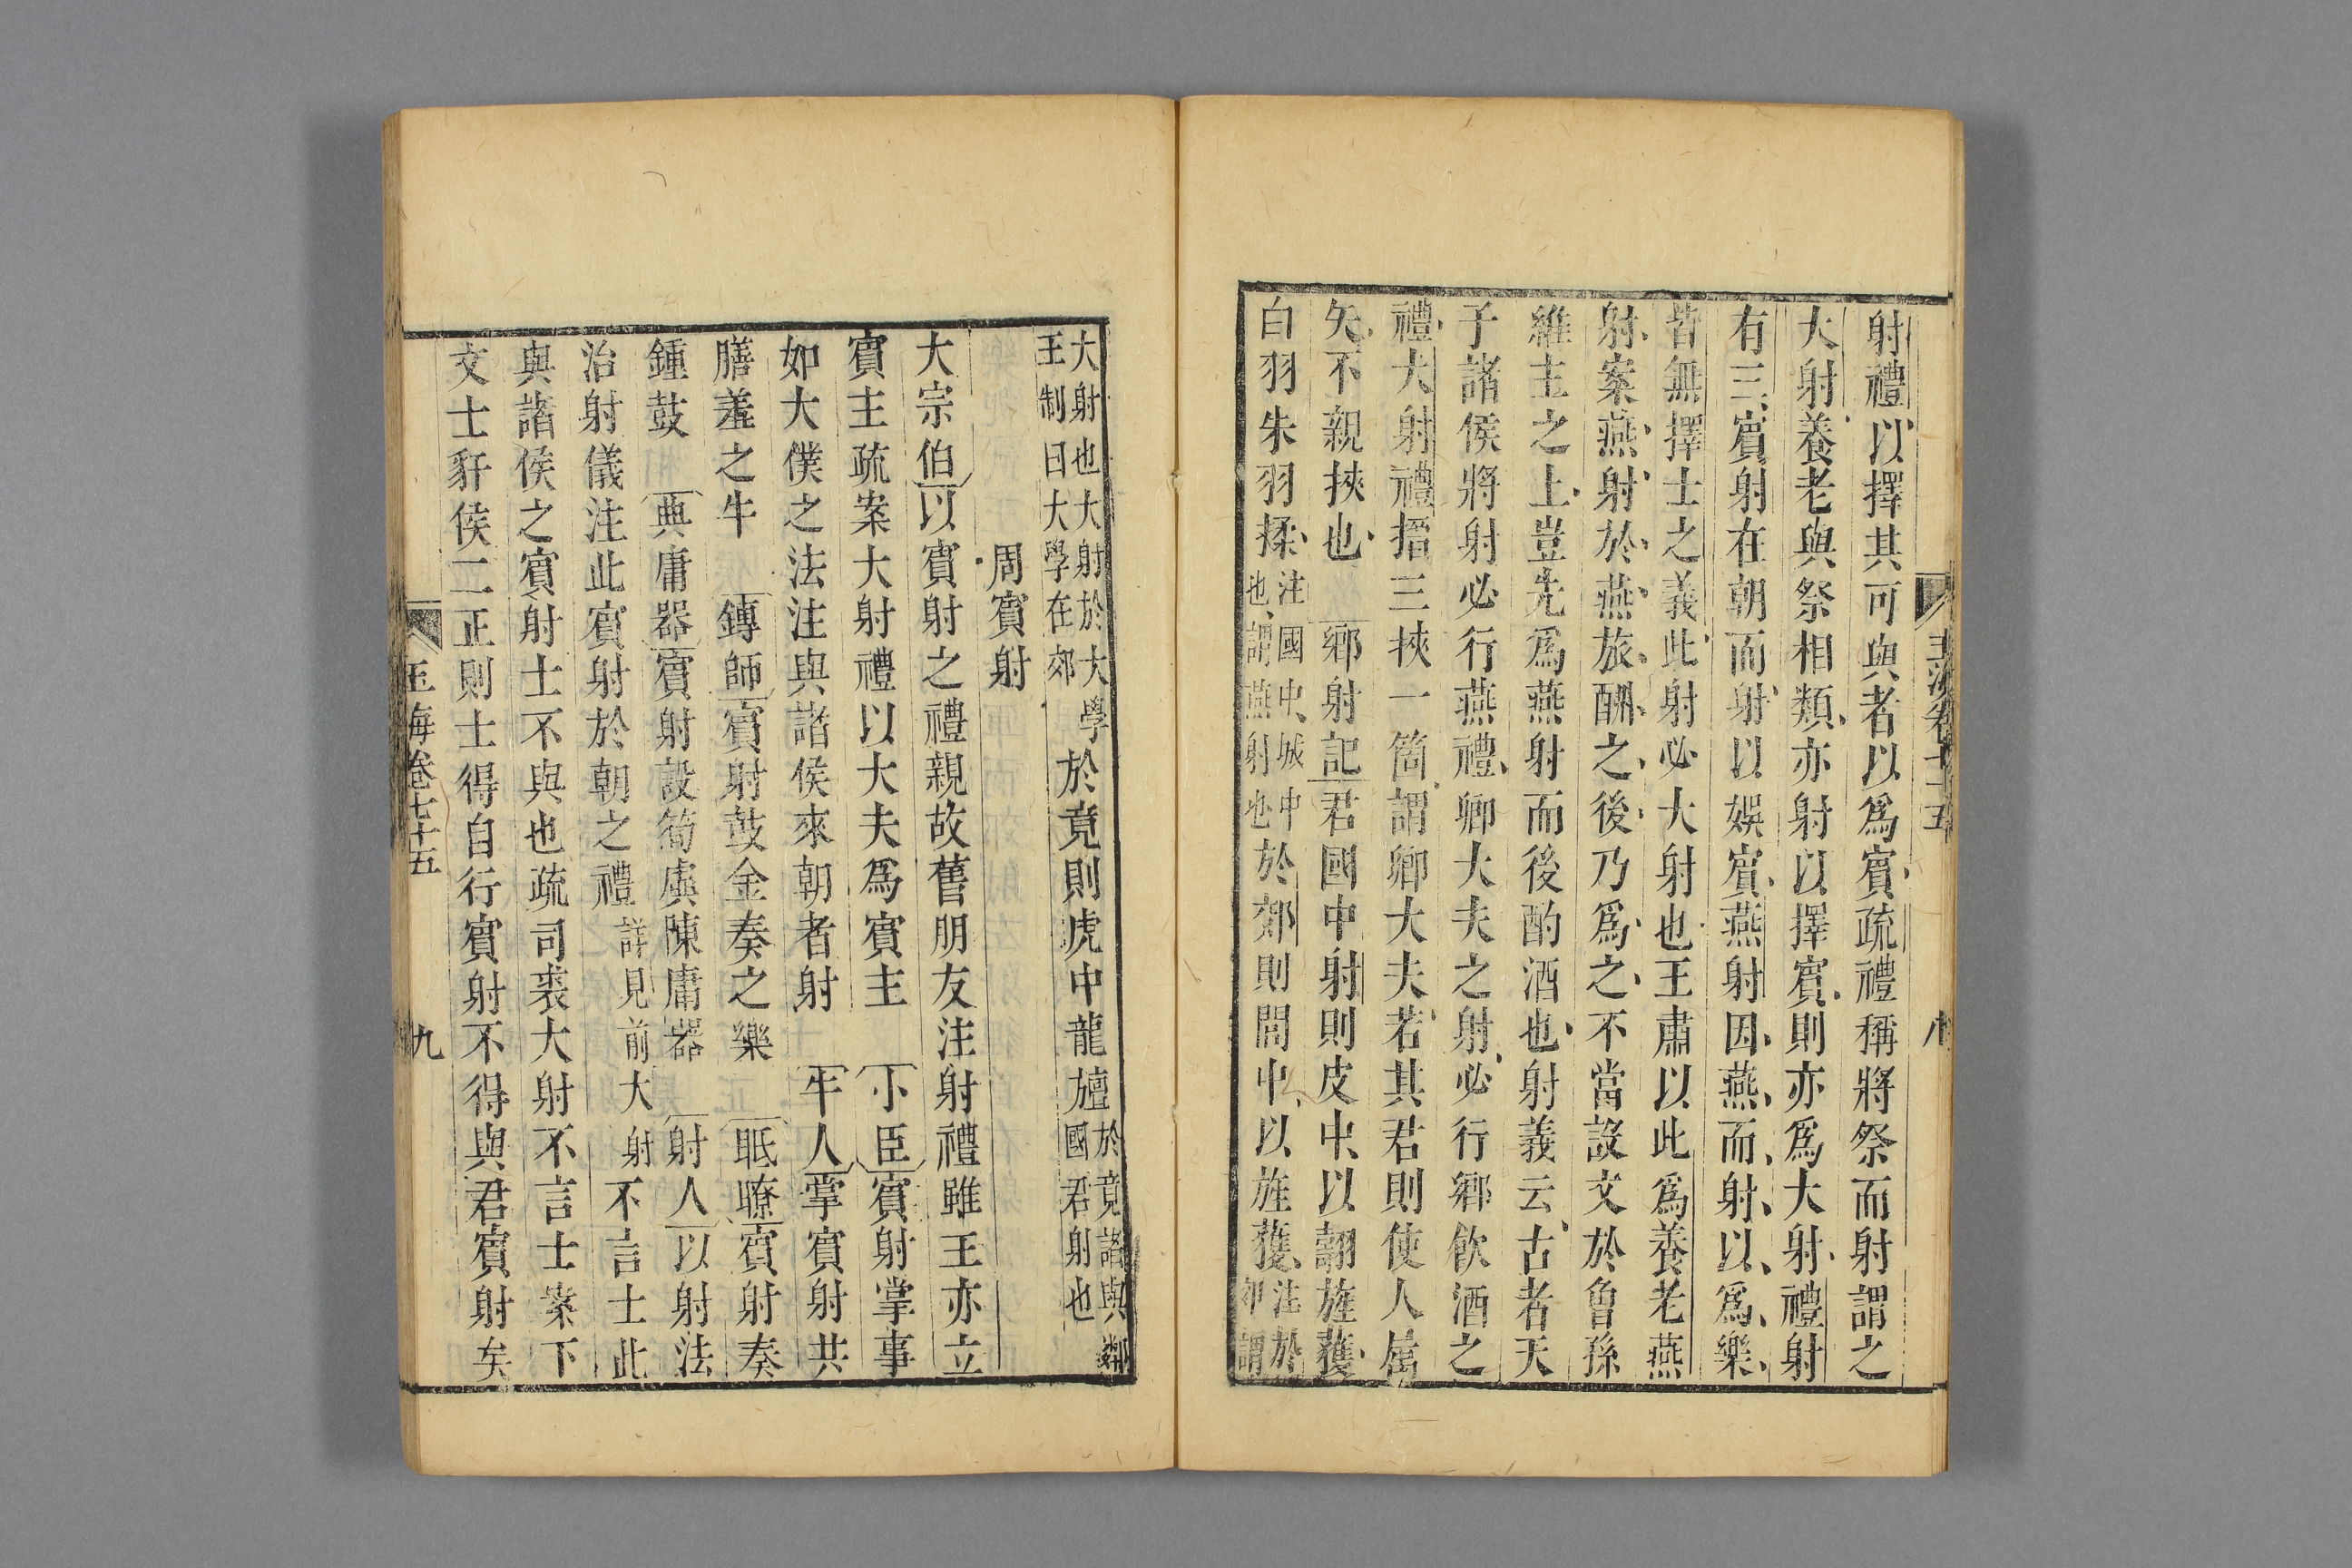 玉海卷七十五 八
射禮以擇其可與者以爲賓疏禮稱將祭而射謂之
大射養老與祭相類亦射以擇賓則亦爲大射禮射
有三賓射在朝而射以娛賓燕射因燕而射以爲樂
皆無擇士之義此射必大射也王肅以此爲養老燕
射案燕射於燕旅酬之後乃爲之不當設文於曾孫
維主之上豈先爲燕射而後酌酒也射義云古者天
子諸侯將射必行燕禮卿大夫之射必行鄉飲酒之
禮大射禮搢三挾一箇謂卿大夫若其君則使人屬
矢不親挾也 鄉射記君國中射則皮中以翿旌獲
白羽朱羽揉注國中城中也謂燕射也於郊則閭中以旌獲注於郊謂
大射也大射於大學王制曰大學在郊於竟則虎中龍旜於竟謂與鄰國君射也
周賓射
大宗伯以賓射之禮親故舊朋友注射禮雖王亦立
賓主疏案大射禮以大夫爲賓主 小臣賓射掌事
如大僕之法注與諸侯來朝者射 牛人掌賓射共
膳羞之牛 鎛師賓射鼓金奏之樂 眡瞭賓射奏
鍾鼓 典庸器賓射設筍虡陳庸器 射人以射法
治射儀注此賓射於朝之禮詳見前大射不言士此
與諸侯之賓射士不與也疏司裘大射不言士案下
文士豻侯二正則士得自行賓射不得與君賓射矣
玉海卷七十五 九